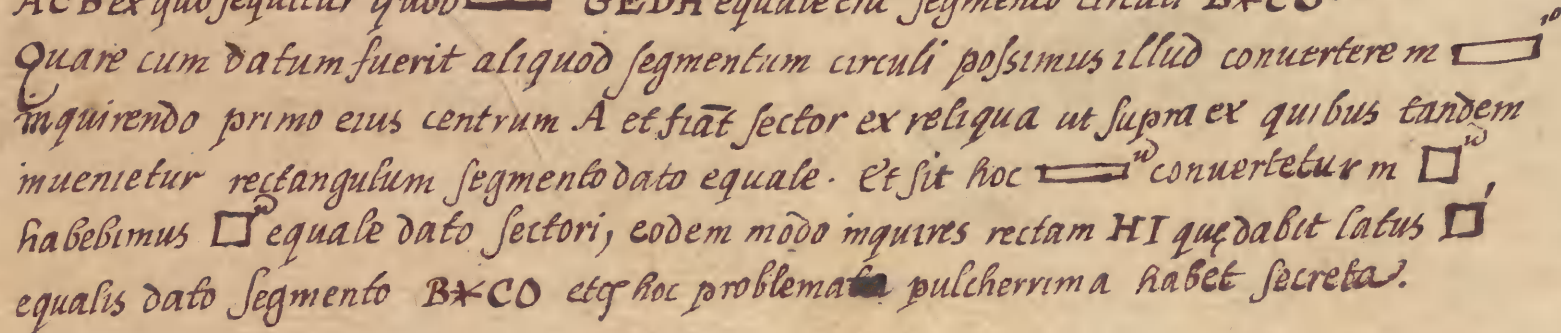 ACB ex quo sequitur quod ▭ GEDH equale erit segmento circuli B*CO
Quare cum datum fuerit aliquod segmentum circuli possimus illud conuertere in ▭
inquirendo primo eius centrum A et fiāt sector ex reliqua ut supra ex quibus tandem
inuenietur rectangulum segmento dato equale. Et sit hoc ▭ conuertetur in □
habebimus □ equale dato sectori, eodem modo inquires rectam HI quę dabit latus □
equalis dato segmento B*CO etq hoc problemata pulcherrima habet secreta.